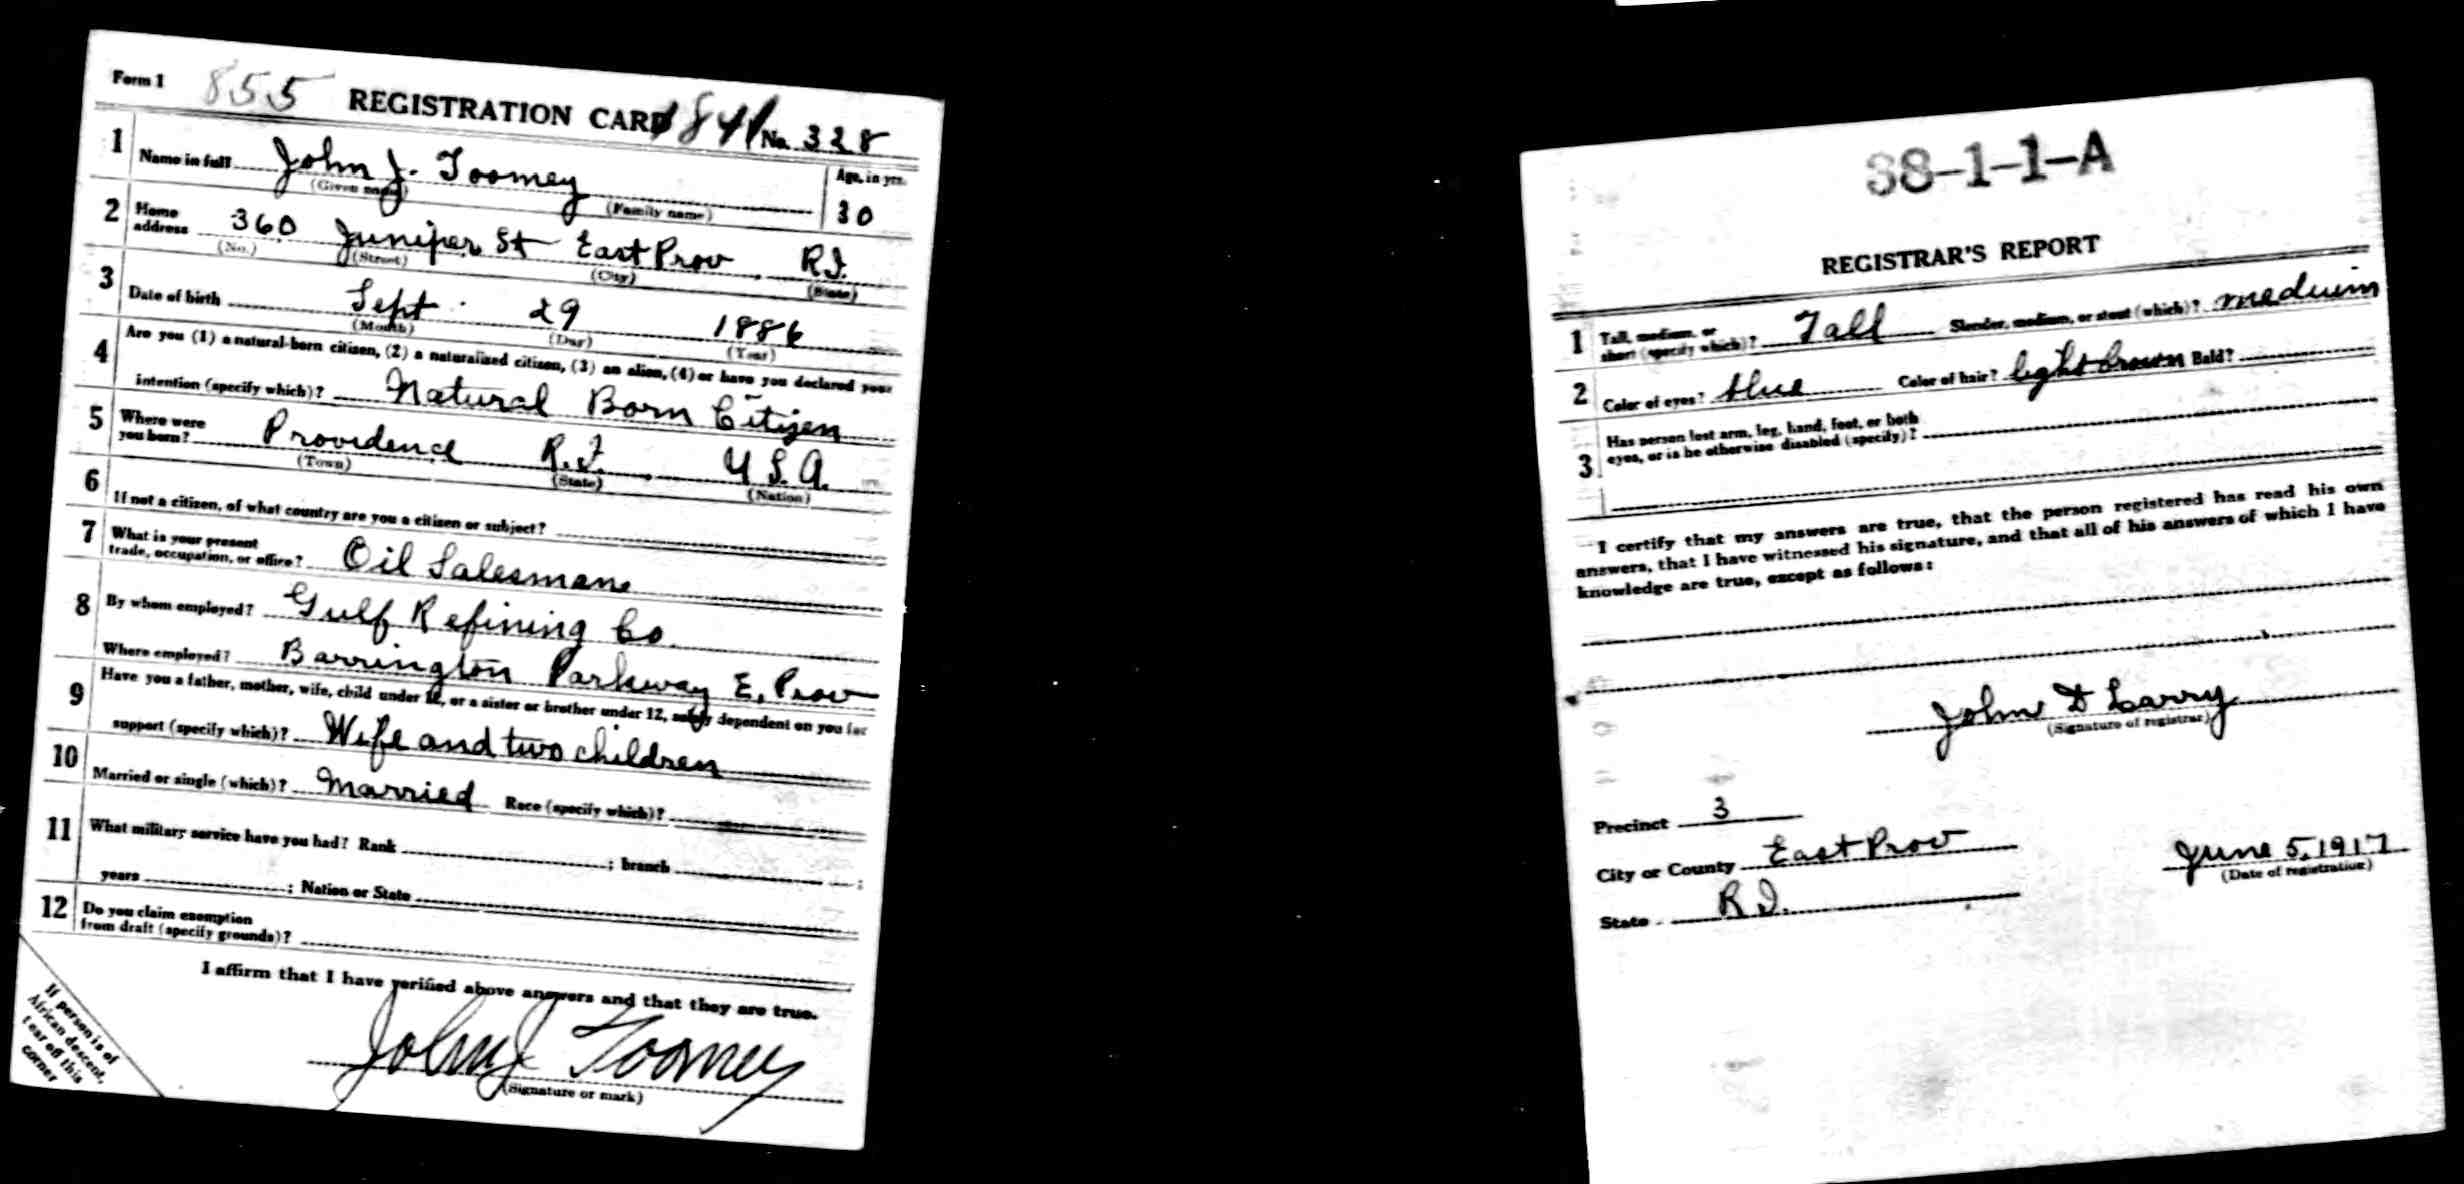 Form 1 855 REGISTRATION CARD 1841 No. 328
1 Name in full John J. Toomey Age, in yrs.
(Given name) (Family name) 30
2 Home address 360 Juniper St East Prov R.I.
(No.) (Street) (City) (State)
3 Date of birth Sept. 29 1886
(Month) (Day) (Year)
4 Are you (1) a natural-born citizen, (2) a naturalized citizen, (3) an alien, (4) or have you declared your
intention (specify which)? Natural Born Citizen
5 Where were you born? Providence R.I. U.S.A.
(Town) (State) (Nation)
6 If not a citizen, of what country are you a citizen or subject?
7 What is your present
trade, occupation, or office? Oil Salesman
8 By whom employed? Gulf Refining Co.
Where employed? Barrington Parkway E. Prov
9 Have you a father, mother, wife, child under 12, or a sister or brother under 12, solely dependent on you for
support (specify which)? Wife and two children
10 Married or single (which)? Married Race (specify which)?
11 What military service have you had? Rank ; branch ;
years ; Nation or State
12 Do you claim exemption
from draft (specify grounds)?
I affirm that I have verified above answers and that they are true.
John J Toomey
(Signature or mark)
If person is of
African descent,
tear off this
corner
38-1-1-A
REGISTRAR'S REPORT
1 Tall, medium, or
short (specify which)? Tall Slender, medium, or stout (which)? medium
2 Color of eyes? blue Color of hair? light brown Bald?
3 Has person lost arm, leg, hand, foot, or both
eyes, or is he otherwise disabled (specify)?
I certify that my answers are true, that the person registered has read his own
answers, that I have witnessed his signature, and that all of his answers of which I have
knowledge are true, except as follows:
John D Larry
(Signature of registrar)
Precinct 3
City or County East Prov
State R I.
June 5, 1917
(Date of registration)